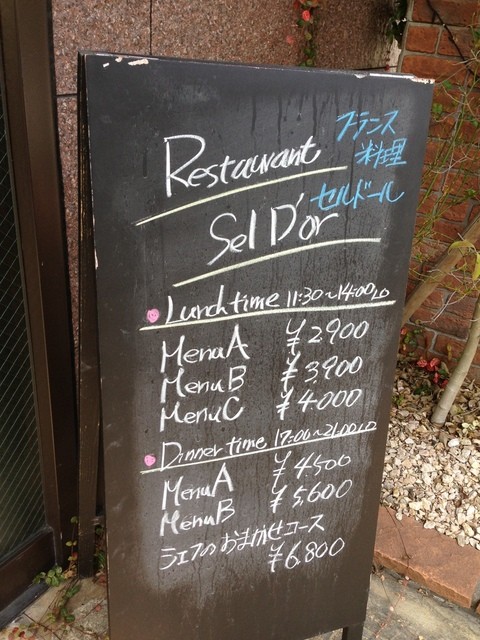 Restaurant
フランス
料理
Sel D'or
セルドール
Lunch time 11:30~14:00LO
Menu A ¥2900
Menu B ¥3,900
Menu C ¥4.000
Dinner time 17:00~21:00LO
Menu A ¥4500
Menu B ¥5,600
シェフのおまかせコース
¥6.800